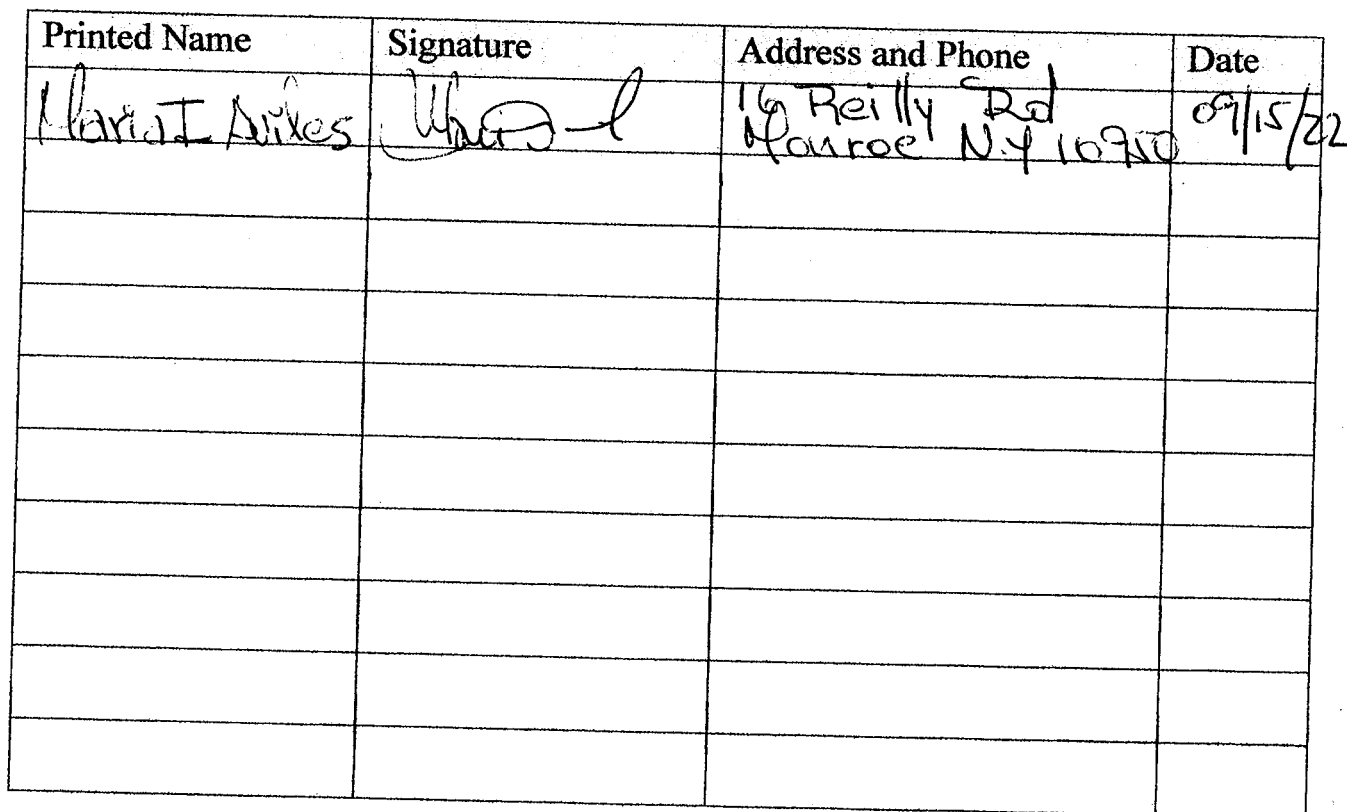 Printed Name Signature Address and Phone Date
Maria I Aviles 16 Reilly Rd 09/15/22
Monroe N.Y 10950